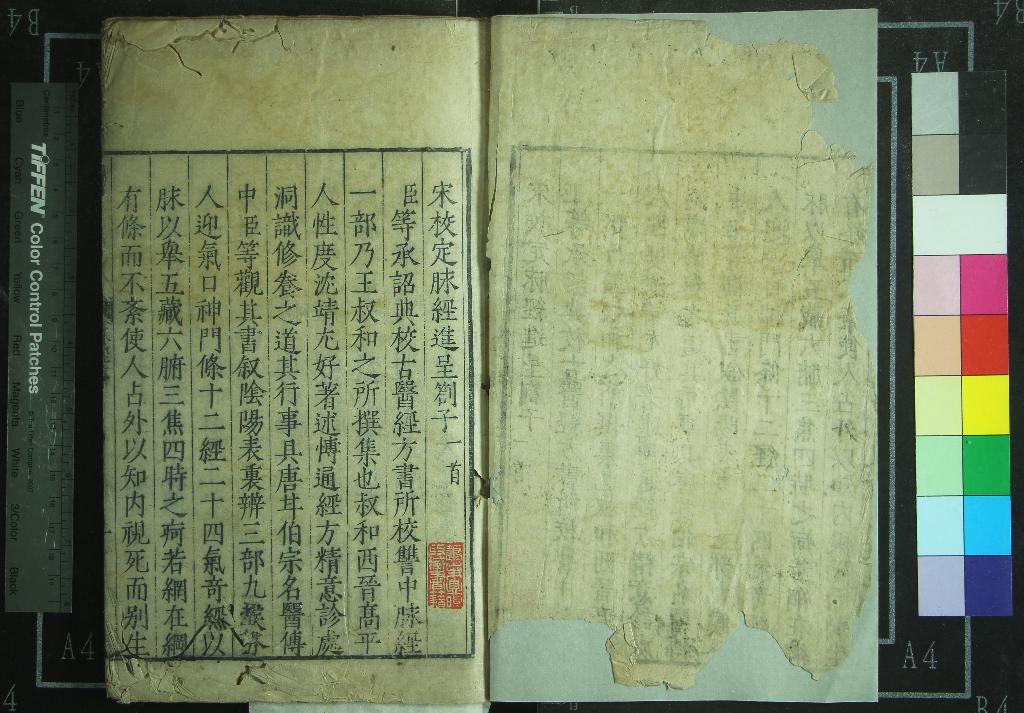 宋校定脉經進呈劄子一首
臣等承詔典校古醫經方書所校讐中脉經
一部乃王叔和之所撰集也叔和西晉髙平
人性度沈靖尤好著述愽通經方精意診處
洞識修養之道其行事具唐甘伯宗名醫傳
中臣等觀其書叙隂陽表裏辨三部九
人迎氣口神門條十二經二十四氣竒經以
脉以舉五藏六腑三焦四時之疴若網在綱
有條而不紊使人占外以知内視死而别生
TIFFEN Color Control Patches
Blue
Cyan
Green
Yellow
Red
Magenta
White
3/Color
Black
Centimetres
A4
A4
A4
A4
B4
B4
B4
4